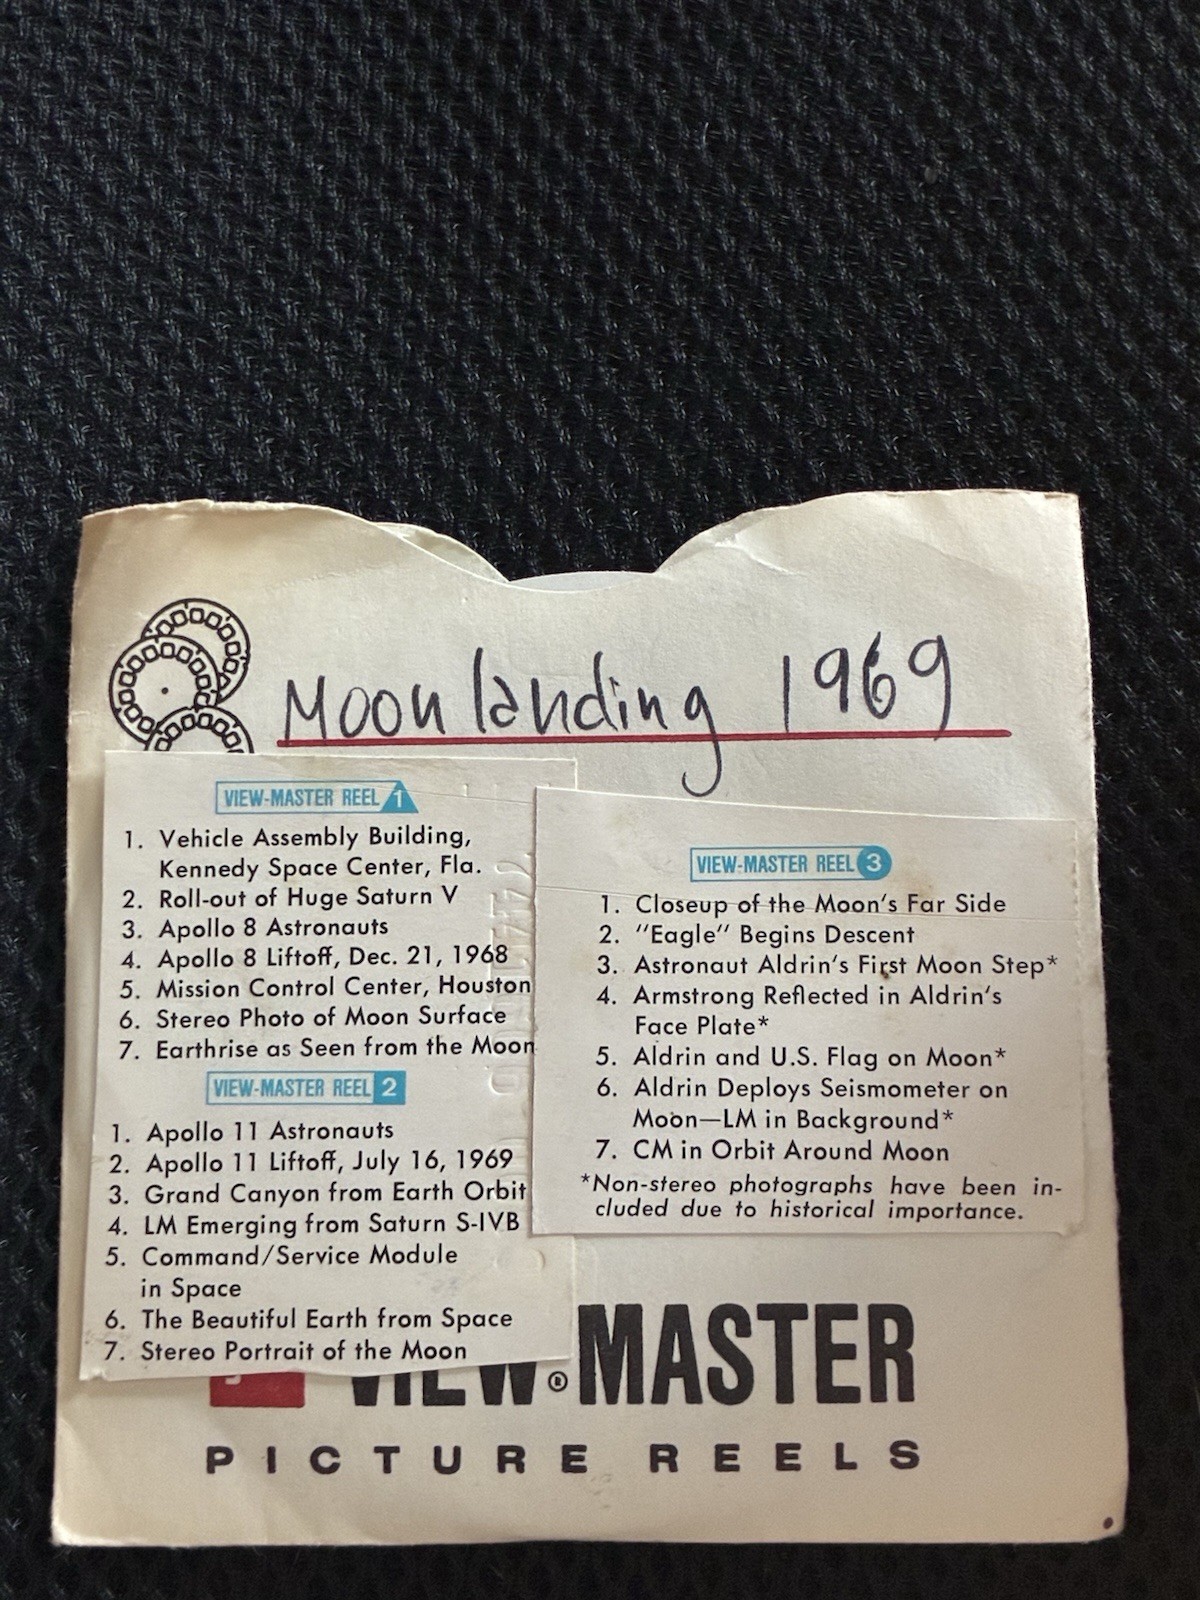 Moonlanding 1969
VIEW-MASTER REEL 1
1. Vehicle Assembly Building,
Kennedy Space Center, Fla.
2. Roll-out of Huge Saturn V
3. Apollo 8 Astronauts
4. Apollo 8 Liftoff, Dec. 21, 1968
5. Mission Control Center, Houston
6. Stereo Photo of Moon Surface
7. Earthrise as Seen from the Moon
VIEW-MASTER REEL 2
1. Apollo 11 Astronauts
2. Apollo 11 Liftoff, July 16, 1969
3. Grand Canyon from Earth Orbit
4. LM Emerging from Saturn S-IVB
5. Command/Service Module
in Space
6. The Beautiful Earth from Space
7. Stereo Portrait of the Moon
VIEW-MASTER REEL 3
1. Closeup of the Moon's Far Side
2. "Eagle" Begins Descent
3. Astronaut Aldrin's First Moon Step*
4. Armstrong Reflected in Aldrin's
Face Plate*
5. Aldrin and U.S. Flag on Moon*
6. Aldrin Deploys Seismometer on
Moon—LM in Background*
7. CM in Orbit Around Moon
*Non-stereo photographs have been in-
cluded due to historical importance.
VIEW®MASTER
PICTURE REELS